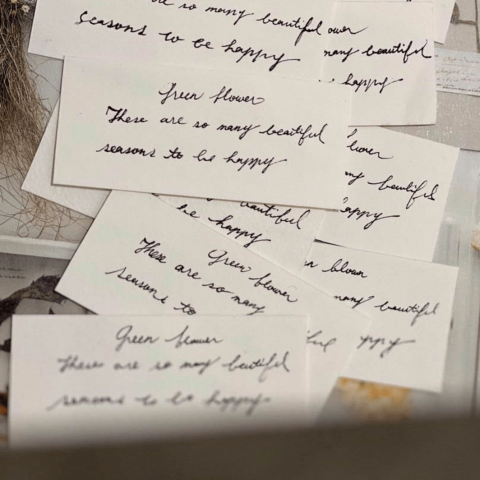 are so many beautiful
seasons to be happy
ower
many beautiful
happy
Green flower
These are so many beautiful
seasons to be happy
lower
my beautiful
appy
beautiful
be happy
Green flower
These are so many
seasons to
many beautiful
ppy
Green flower
These are so many beutiful
seasons to be happy